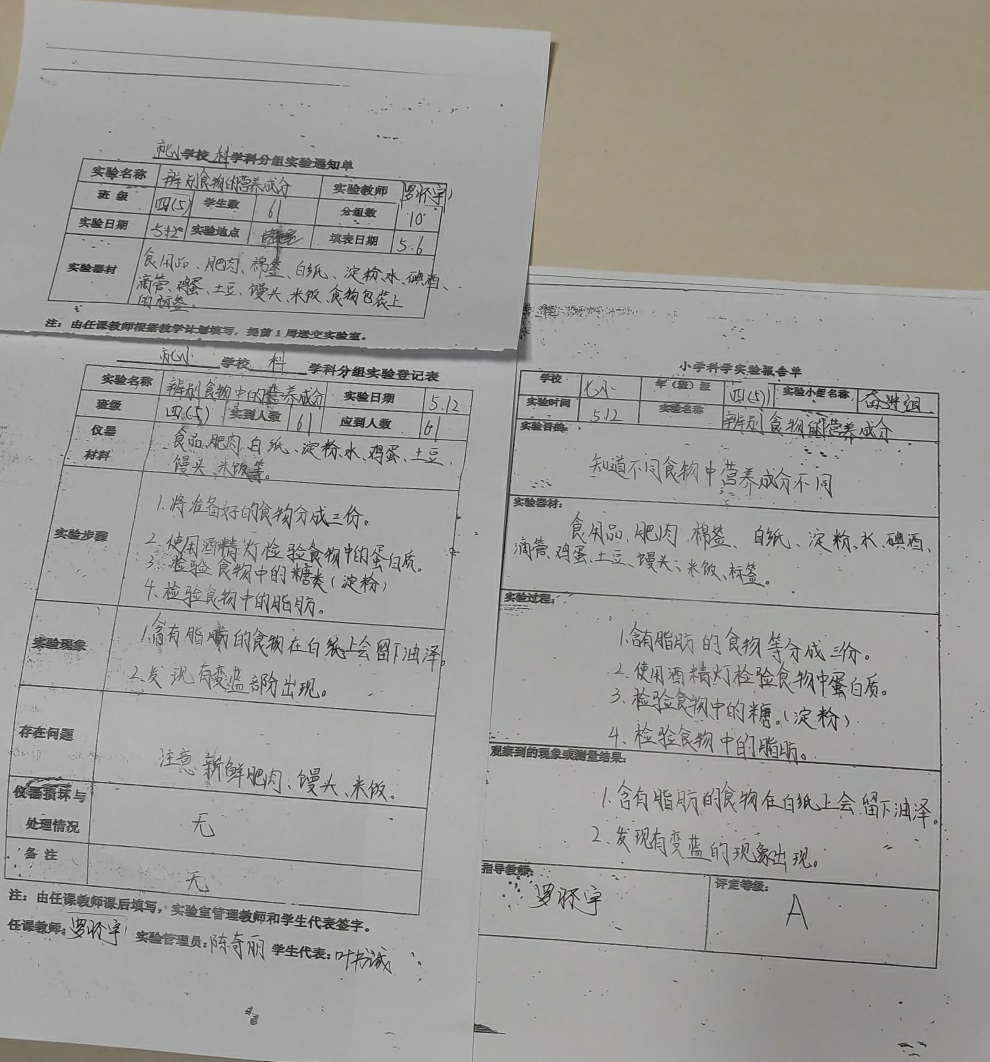 学校 科学科分组实验通知单
实验名称 辨别食物的营养成分 实验教师 罗怀宇
班级 四(5) 学生数 61 分组数 10
实验日期 5.12 实验地点 填表日期 5.6
实验器材 食用品、肥肉、棉签、白纸、淀粉、水、碘酒、
滴管、鸡蛋、土豆、馒头、米饭、食物包装上
的标签
注：由任课教师根据教学计划填写，提前1周送交实验室。
学校 科 学科分组实验登记表
实验名称 辨别食物中的营养成分 实验日期 5.12
班级 四(5) 实到人数 61 应到人数 61
仪器材料 食品、肥肉、白纸、淀粉、水、鸡蛋、土豆、
馒头、米饭等。
实验步骤
1.将准备好的食物分成三份。
2.使用酒精灯检验食物中的蛋白质。
3.检验食物中的糖类(淀粉)
4.检验食物中的脂肪。
实验现象
1.含有脂肪的食物在白纸上会留下油泽。
2.发现有变蓝部份出现。
存在问题
注意新鲜肥肉、馒头、米饭。
仪器损坏与处理情况 无
备注 无
注：由任课教师课后填写，实验室管理教师和学生代表签字。
任课教师：罗怀宇 实验管理员：陈奇丽 学生代表：叶书诚
小学科学实验报告单
学校 年(班)级 四(5) 实验小组名称 奋进组
实验时间 5.12 实验名称 辨别食物的营养成分
实验目的：
知道不同食物中营养成分不同
实验器材：
食用品、肥肉、棉签、白纸、淀粉、水、碘酒、
滴管、鸡蛋、土豆、馒头、米饭、标签。
实验过程：
1.含有脂肪的食物等分成三份。
2.使用酒精灯检验食物中蛋白质。
3.检验食物中的糖。(淀粉)
4.检验食物中的脂肪。
观察到的现象或测量结果：
1.含有脂肪的食物在白纸上会留下油泽。
2.发现有变蓝的现象出现。
指导教师： 罗怀宇 评定等级： A